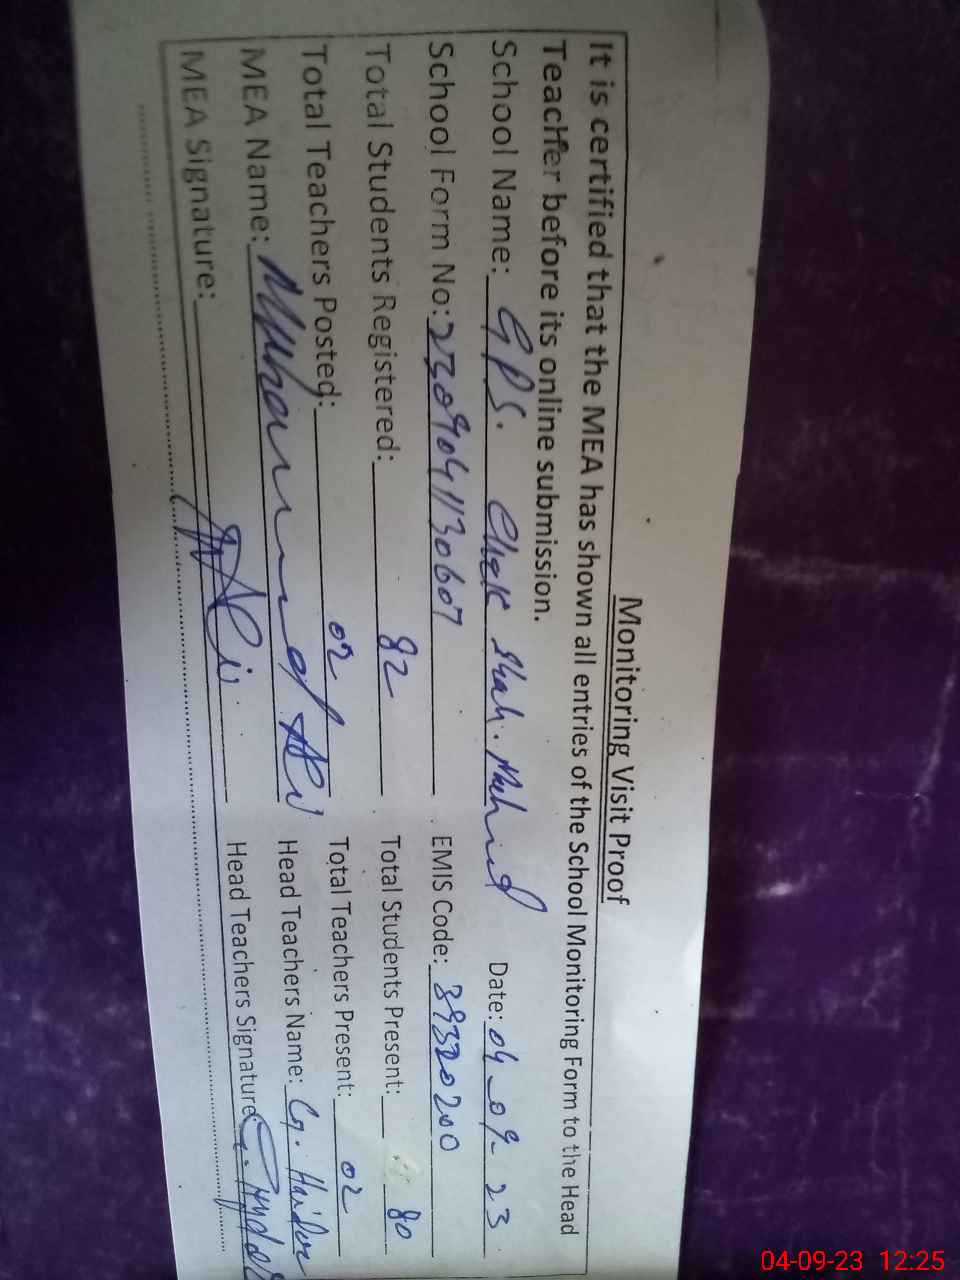 Monitoring Visit Proof
It is certified that the MEA has shown all entries of the School Monitoring Form to the Head
Teacher before its online submission.
School Name: GPS. Chak Shah. Date: 04-09-23
School Form No: 2309041130607 EMIS Code: 39320200
Total Students Registered: 82 Total Students Present: 80
Total Teachers Posted: 02 Total Teachers Present: 02
MEA Name: Muhammad Ali Head Teachers Name: G. Haider
MEA Signature: Ali Head Teachers Signature:
04-09-23 12:25